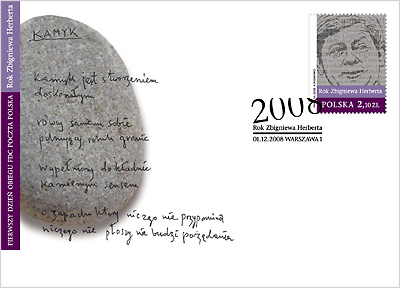 Rok Zbigniewa Herberta
PIERWSZY DZIEŃ OBIEGU FDC POCZTA POLSKA
KAMYK
kamyk jest stworzeniem
doskonałym
równy samemu sobie
pilnujący swych granic
wypełniony dokładnie
kamiennym sensem
o zapachu który niczego nie przypomina
niczego nie płoszy nie budzi pożądania
Rok Zbigniewa Herberta
POLSKA 2,10 ZŁ
2008
Rok Zbigniewa Herberta
01.12.2008 WARSZAWA 1